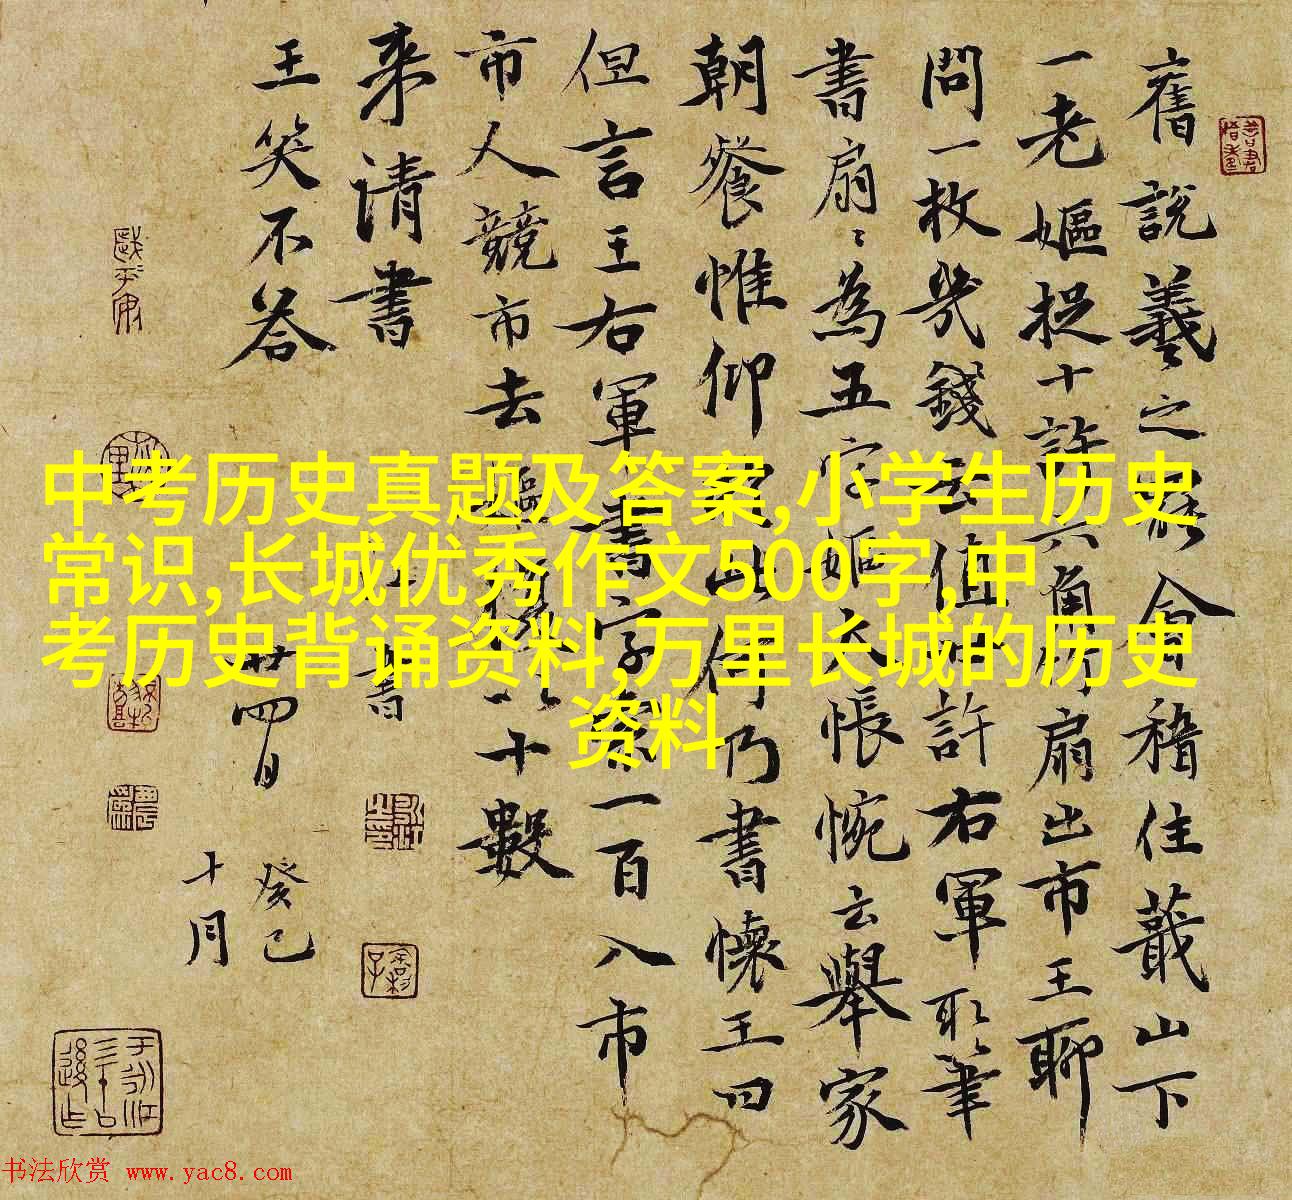 舊說羲之罷會稽住蕺山下
一老嫗捉十許六角竹扇出市王聊
問一枚幾錢云值廿許右軍取筆
書扇〻為五字嫗大悵惋云舉家
朝餐惟仰此何乃書壞王曰
但言王右軍書字索一百入市
市人競市去嫗復以十數
来清書
王笑不答
廿四日
癸巳
十月
中考历史真题及答案,小学生历史
常识,长城优秀作文500字,中
考历史背诵资料,万里长城的历史
资料
书法欣赏 www.yac8.com